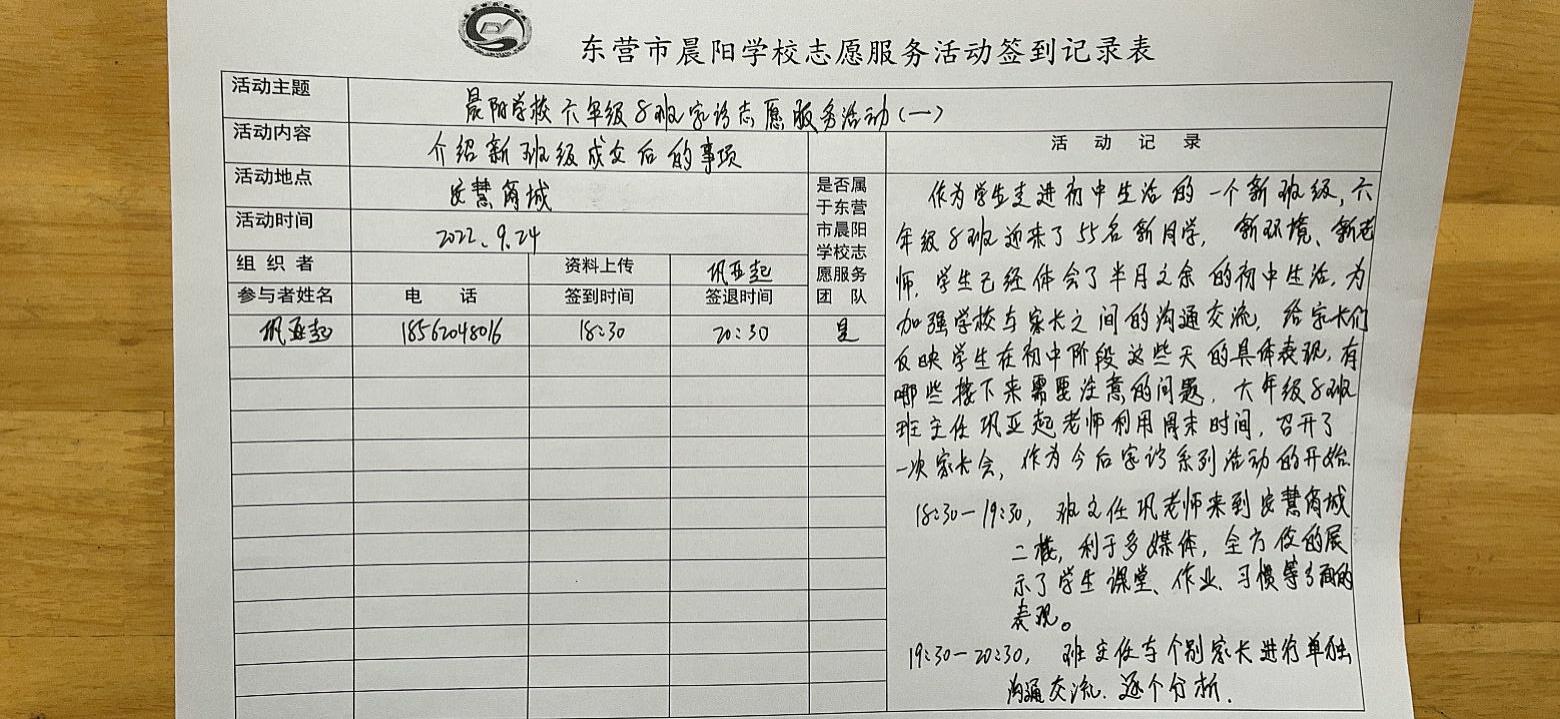 东营市晨阳学校志愿服务活动签到记录表
活动主题 晨阳学校六年级8班家访志愿服务活动(一)
活动内容 介绍新班级成立后的事项
活动地点 安慧商城
活动时间 2022.9.24
组织者 资料上传 巩亚起
参与者姓名 电话 签到时间 签退时间
是否属
于东营
市晨阳
学校志
愿服务
团队
巩亚起 18562048016 18:30 20:30 是
活动记录
作为学生走进初中生活的一个新班级,六
年级8班迎来了55名新同学,新环境、新老
师,学生已经体会了半月之余的初中生活,为
加强学校与家长之间的沟通交流,给家长们
反映学生在初中阶段这些天的具体表现,有
哪些接下来需要注意的问题,六年级8班
班主任巩亚起老师利用周末时间,召开了
一次家长会,作为今后家访系列活动的开始.
18:30—19:30, 班主任巩老师来到安慧商城
二楼,利于多媒体,全方位的展
示了学生课堂、作业、习惯等方面的
表现。
19:30—20:30, 班主任与个别家长进行单独
沟通交流.逐个分析.